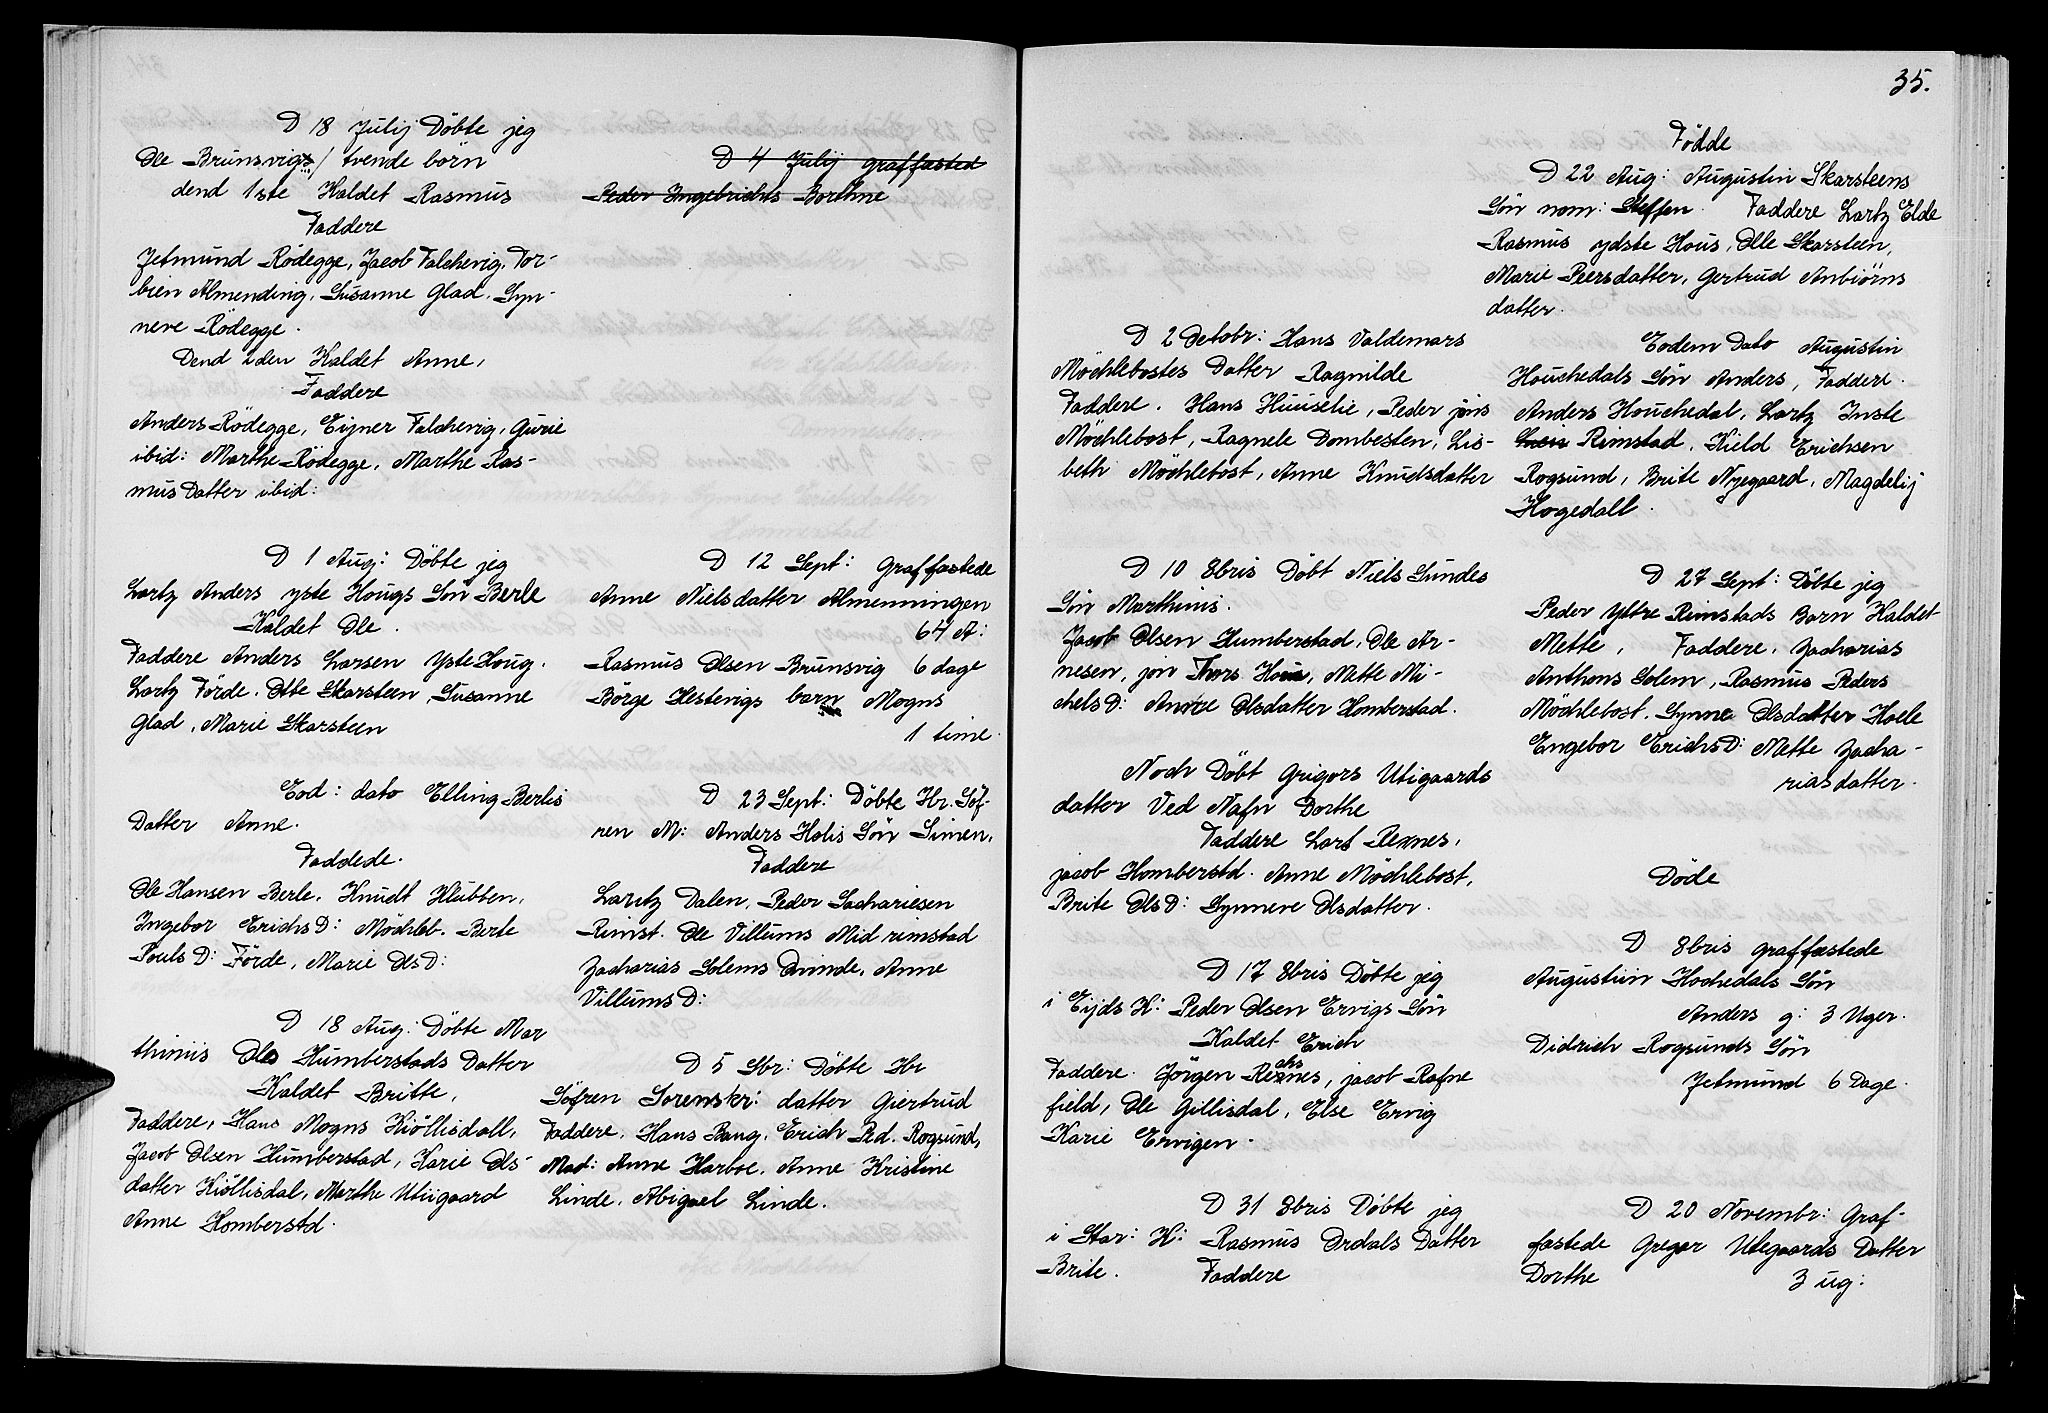 D 18 Julij Döbte jeg
Ole Brunsvigs / tvende börn
dend 1ste Kaldet Rasmus
Faddere
Jetmund Rödegge, Jacob Falchevig, Tor-
bien Almending, Susanne Glad, Syn-
neve Rödegge.
Dend 2den Kaldet Anne,
Faddere
Anders Rödegge, Ejner Falchevig, Gurie
ibid: Marthe Rödegge, Marthe Ras-
mus Datter ibid:
D 1 Aug: Döbte jeg
Lartz Anders yste Hougs Sön Berle
Kaldet Ole.
Faddere Anders Larsen Yste Houg.
Lartz Förde. Otte Skarsteen, Susanne
Glad, Marie Skarsteen
Eod: dato Elling Berlis
Datter Anne.
Faddede.
Ole Hansen Berle. Knudt Klubben,
Ingebor Erichs D: Möchleb. Berte
Pouls D: Förde, Marie Ols D:
D 18 Aug: Döbte Mar
thinus Ols Humberstads Datter
Kaldet Britte,
Faddere, Hans Mogns Kiöllisdall,
Jacob Olsen Humberstad, Karie Ols-
datter Kiöllisdal, Marthe Utiigaard
Anne Homberstd.
D 4 Julij graffæsted
Peder Ingebrichts Borthne
D 12 Sept: Graffæstede
Anne Nielsdatter Almenningen
64 A:
Rasmus Olsen Brunsvig 6 dage
Börge Hestevigs barn Mogns
1 time.
D 23 Sept: Döbte Hr. Söf-
ren M: Anders Holis Sön Simen,
Faddere
Laritz Dalen, Peder Sachariesen
Rimst. Ole Villums Mid rimstad
Zacharias Solems Qvinde, Anne
Villums D:
D 5 Sbr: Döbte Hr
Söfren Sorenskr: datter Giertrud
Faddere. Hans Bang, Erich Pd. Rogsund,
Mad: Anne Harboe. Anne Kristine
Linde, Abigael Linde.
35.
D 2 Octobr: Hans Valdemars
Möchlebostes Datter Ragnilde
Faddere. Hans Huuselie, Peder jons
Möchlebost, Ragnele Dombesten, Lis-
beth Möchlebost, Anne Knudsdatter
D 10 8bris Döbt Niels Sundes
Sön Marthinus.
Jacob Olsen Humberstad, Ole Ar-
nesen, jon Thors Hous, Mette Mi-
chels D: Anne Olsdatter Homberstad.
Noch Döbt Grigors Utigaards
datter Ved Nafn Dorthe
Faddere Lars Rexnes,
jacob Homberstd. Anne Möchlebost,
Brite Ols D: Synneve Olsdatter.
D 17 8bris Döbte jeg
i Eijds K: Peder Olsen Ervigs Sön
Kaldet Erich
Faddere Jörgen Rexnes, jacob Rafne
field, Ole Gillisdal, Else Ervig
Karie Ervigen.
D 31 8bris Döbte jeg
i Star: K: Rasmus Ordals Datter
Brite. Faddere
Födde
D 22 Aug: Augustin Skarsteens
Sön nom: Steffen. Faddere Lartz Elde
Rasmus ydste Hous, Olle Skarsteen,
Marie Peersdatter, Gertrud Anbiörns
datter.
Eodem Dato Augustin
Houchedals Sön Anders, Faddere.
Anders Houchedal, Lartz Inste
Rimstad, Kield Erichsen
Rogsund, Brite Nyegaard, Magdelij
Hogedall.
D 27 Sept: Döbte jeg
Peder Yttre Rimstads Barn Kaldet
Mette, Faddere, Zacharias
Anthons Solem, Rasmus Peders
Möchlebost, Synne Olsdatter Hoele
Engebor Erichs D: Mette Zacha-
riasdatter.
Döde
D 8bris graffæstede
Augustiin Hochedals Sön
Anders g: 3 Uger.
Didrich Rogsunds Sön
Jetmund 6 Dage.
D 20 Novembr: Graf-
fæstede Gregar Utegaards Datter
Dorthe 3 ug: